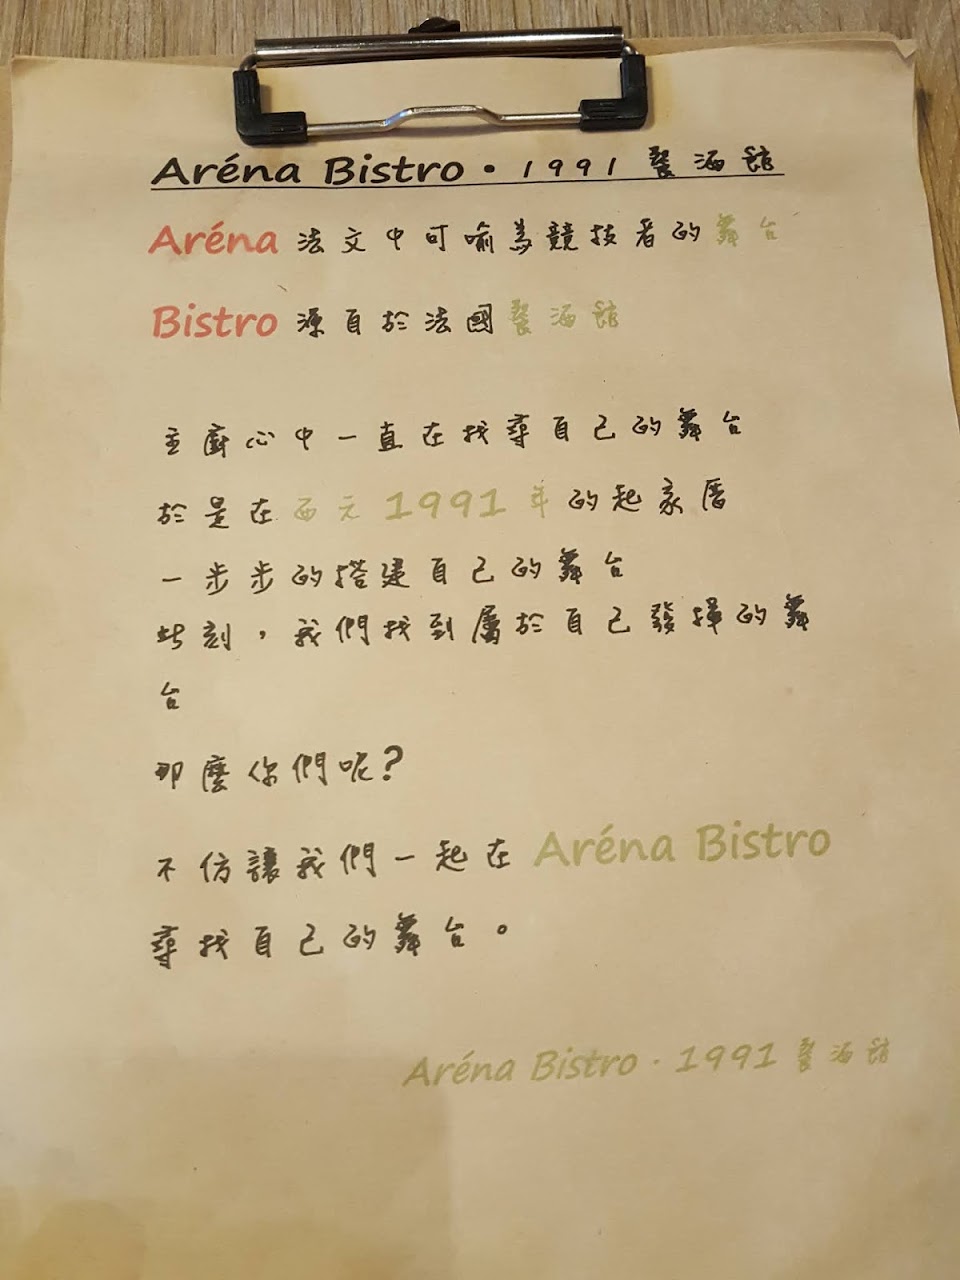 Aréna Bistro·1991餐酒館
Aréna 法文中可喻為競技者的舞台
Bistro 源自於法國餐酒館
主廚心中一直在找尋自己的舞台
於是在西元1991年的起家厝
一步步的搭建自己的舞台
此刻，我們找到屬於自己發揮的舞
台
那麼你們呢?
不仿讓我們一起在 Aréna Bistro
尋找自己的舞台。
Aréna Bistro·1991餐酒館